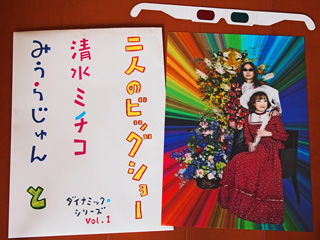 二人のビッグショー
清水ミチコ
みうらじゅん と
ダイナミック・
シリーズ
Vol.1